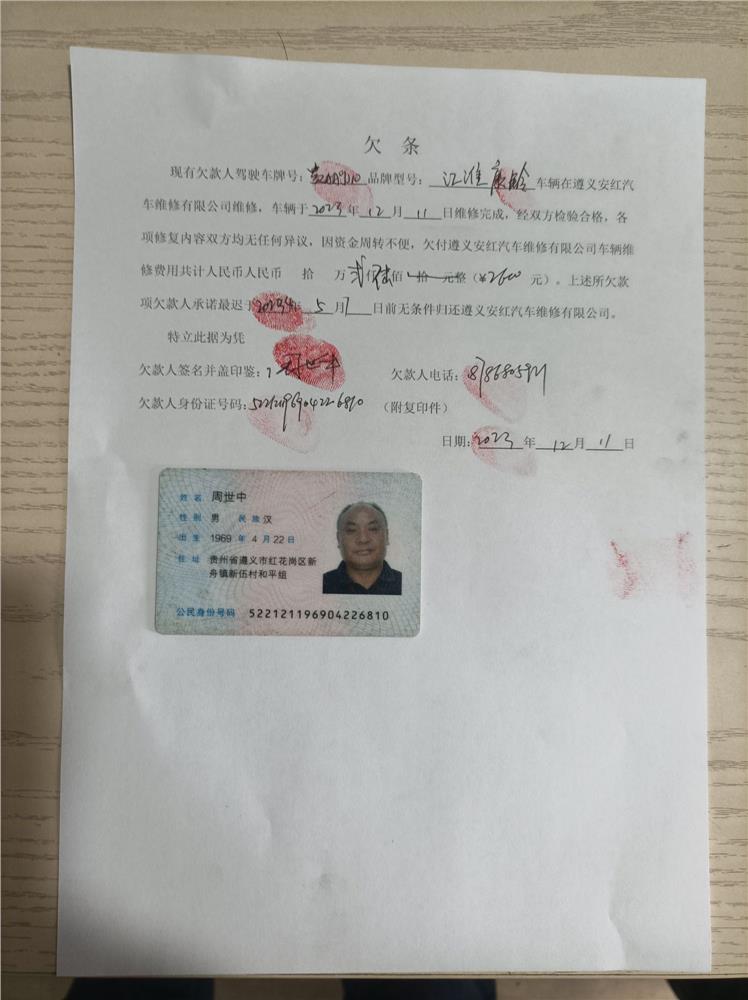 欠 条
现有欠款人驾驶车牌号： 品牌型号：江淮康铃车辆在遵义安红汽
车维修有限公司维修，车辆于2023年12月11日维修完成，经双方检验合格，各
项修复内容双方均无任何异议，因资金周转不便，欠付遵义安红汽车维修有限公司车辆维
修费用共计人民币人民币 拾 万 贰仟陆佰 拾 元整（¥2600 元）。上述所欠款
项欠款人承诺最迟于 年 5 月 日前无条件归还遵义安红汽车维修有限公司。
特立此据为凭
欠款人签名并盖印鉴：周世中 欠款人电话：
欠款人身份证号码：522121196904226810 （附复印件）
日期：2023 年 12 月 11 日
姓 名 周世中
性 别 男 民 族 汉
出 生 1969 年 4 月 22 日
住 址 贵州省遵义市红花岗区新
舟镇新伍村和平组
公民身份号码 522121196904226810